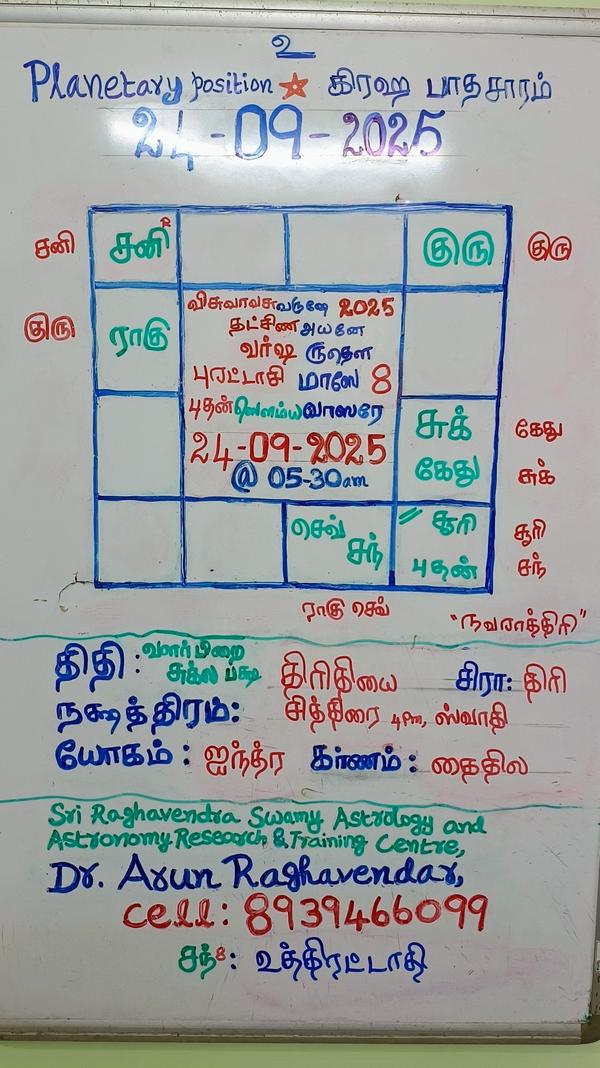 உ
Planetary position கிரஹ பாதசாரம்
24-09-2025
சனி சனி R குரு குரு
குரு ராகு
விசுவாவசுவருஷே 2025
தட்சிணஅயனே
வர்ஷ ருதௌ
புரட்டாசி மாஸே 8
புதன்ஸௌம்யவாஸரே
24-09-2025
@ 05-30am
சுக் கேது
கேது சுக்
செவ் சந் சூரி சூரி
புதன் சந்
ராகு செவ் "நவராத்திரி"
திதி: வளர்பிறை சுக்ல பக்ஷ திரிதியை சிரா: திரி
நக்ஷத்திரம்: சித்திரை 4Pm, ஸ்வாதி
யோகம்: ஐந்த்ர கரணம்: தைதில
Sri Raghavendra Swamy Astrology and
Astronomy Research & Training Centre,
Dr. Arun Raghavendar,
cell: 8939466099
சந்8: உத்திரட்டாதி